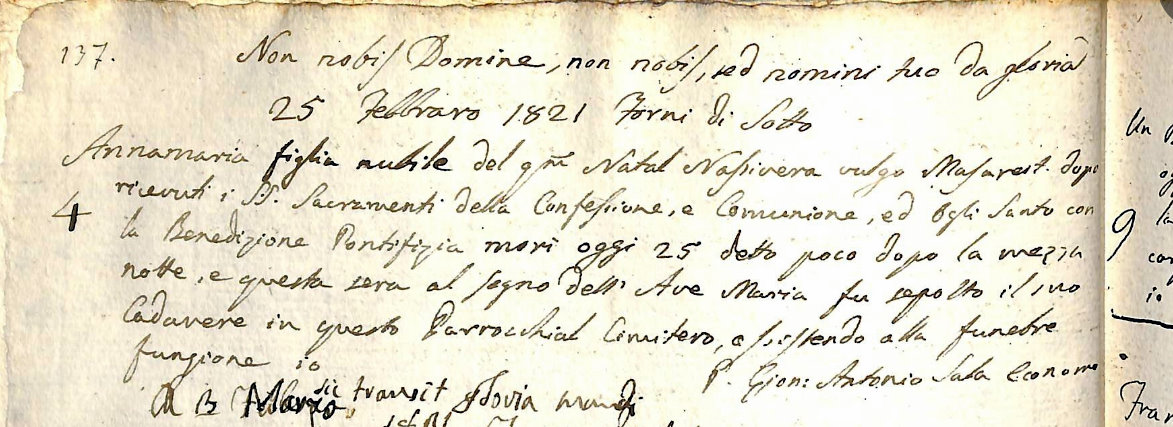 137.
Non nobis Domine, non nobis, sed nomini tuo da gloria
25 Febbraro 1821 Forni di Sotto
Annamaria figlia nubile del qm Natal Nassivera vulgo Masarest. dopo
ricevuti i SS. Sacramenti della Confessione, e Comunione, ed Ogli Santo con
4 la Benedizione Pontifizia morì oggi 25 detto poco dopo la mezza
notte, e questa sera al segno dell' Ave Maria fu sepolto il suo
Cadavere in questo Parrocchial Cimitero, assistendo alla funebre
funzione io P. Gion: Antonio Sala Economo
sic transit gloria mundi
Marzo
Un
9 la
io